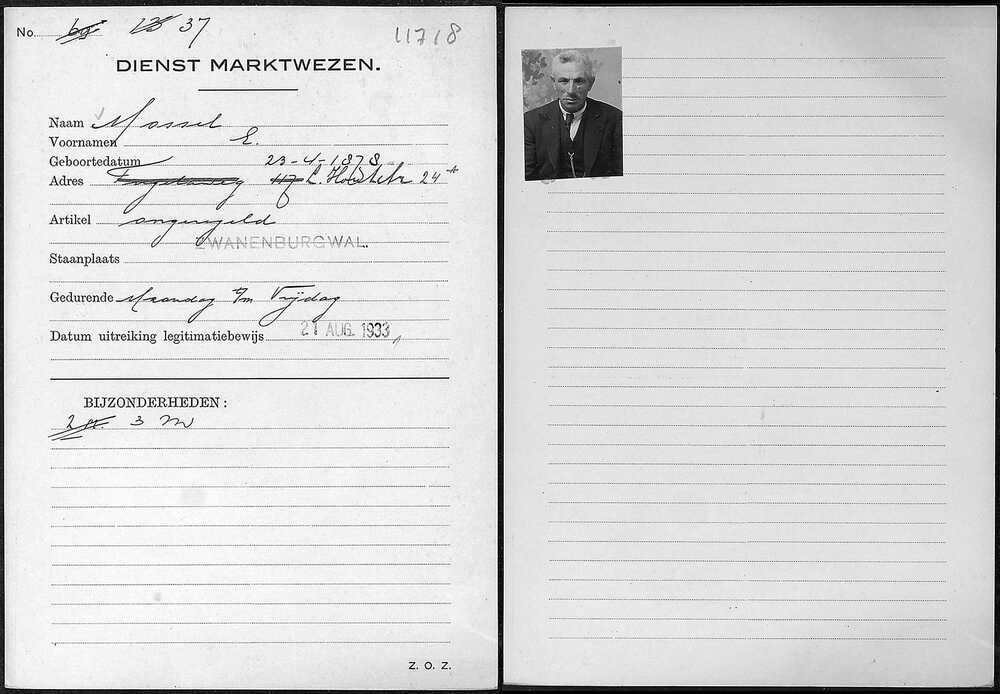 No. 37
11718
DIENST MARKTWEZEN.
Naam Mossel
Voornamen E.
Geboortedatum 23-4-1878
Adres 24
Artikel ongeregeld
ZWANENBURGWAL.
Staanplaats
Gedurende Maandag t/m Vrijdag
Datum uitreiking legitimatiebewijs 21 AUG. 1933
BIJZONDERHEDEN:
3 M
Z. O. Z.